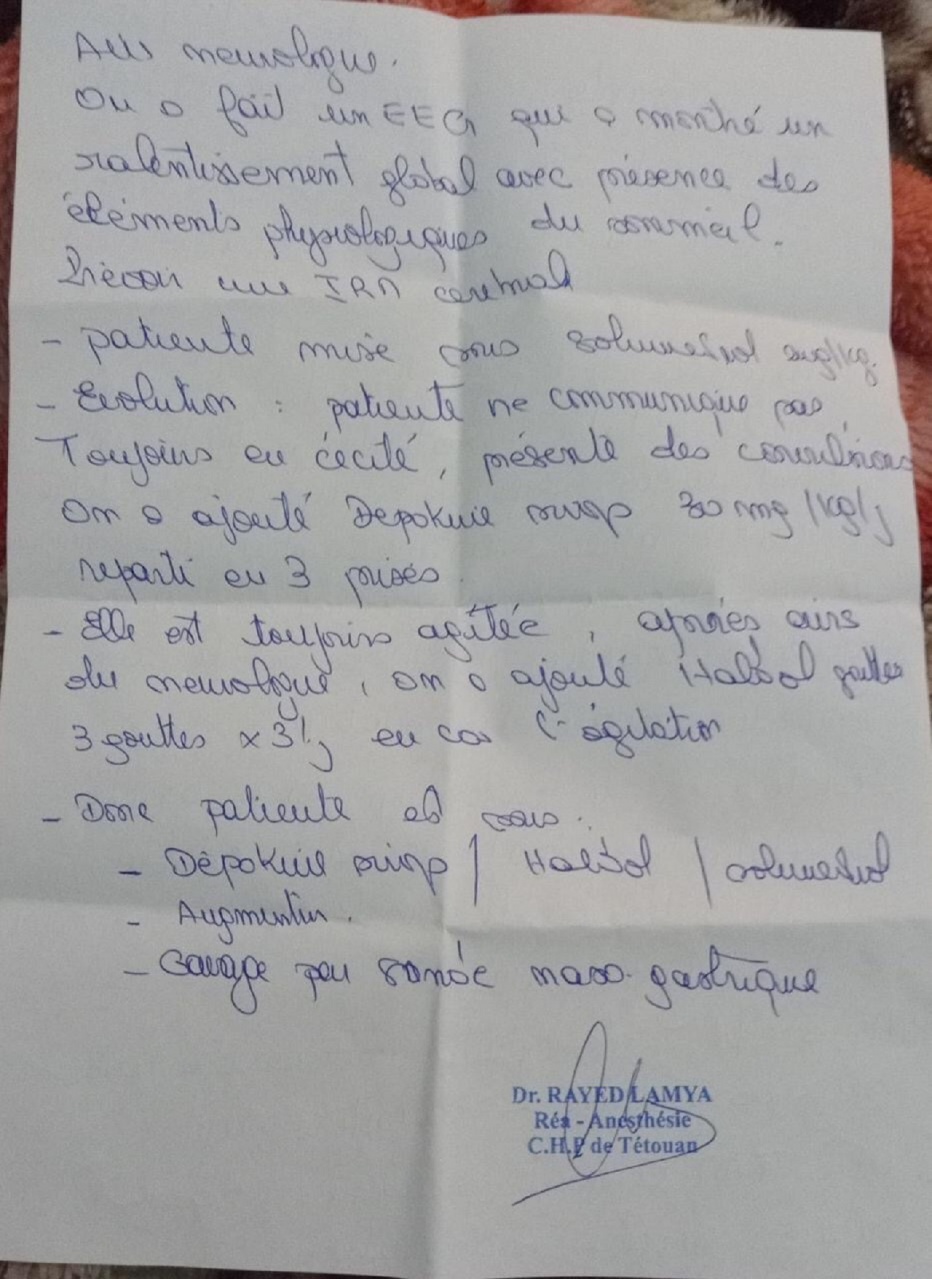 Avis neurologique.
On a fait un EEG qui a montré un
ralentissement global avec présence des
éléments physiologiques du sommeil.
Prévoir une IRM cérébrale
- patiente mise sous Solumedrol mg/kg.
- Evolution : patiente ne communique pas,
Toujours en cécité, présente des convulsions
On a ajouté Depakine sirop 30 mg/kg/j
reparti en 3 prises.
- Elle est toujours agitée, après avis
du neurologue, on a ajouté Haldol gouttes
3 gouttes x 3/j en cas d'agitation
- Donc patiente est sous :
- Dépakine sirop / Haldol / Solumedrol
- Augmentin.
- Gavage par sonde naso-gastrique
Dr. RAYED LAMYA
Réa - Anesthésie
C.H.P de Tétouan